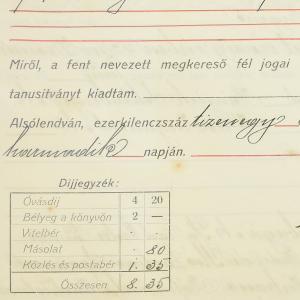 Miről, a fent nevezett megkereső fél jogai
tanusitványt kiadtam.
Alsólendván, ezerkilenczszáz tizenegy
harmadik napján.
Díjjegyzék:
Óvásdíj 4 20
Bélyeg a könyvön 2 —
Vitelbér . .
Másolat . 80
Közlés és postabér 1. 35
Összesen 8. 35